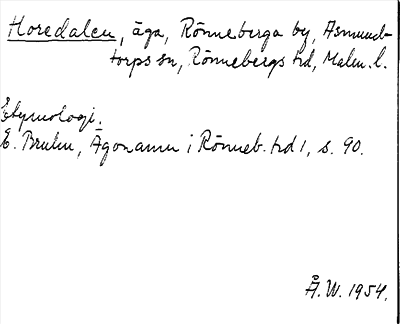 Horedalen, äga, Rönneberga by, Asmund-
torps sn, Rönnebergs hd, Malm. l.
Etymologi.
E. Bruhn, Ägonamn i Rönneb. hd 1, s. 90.
Å. W. 1954.